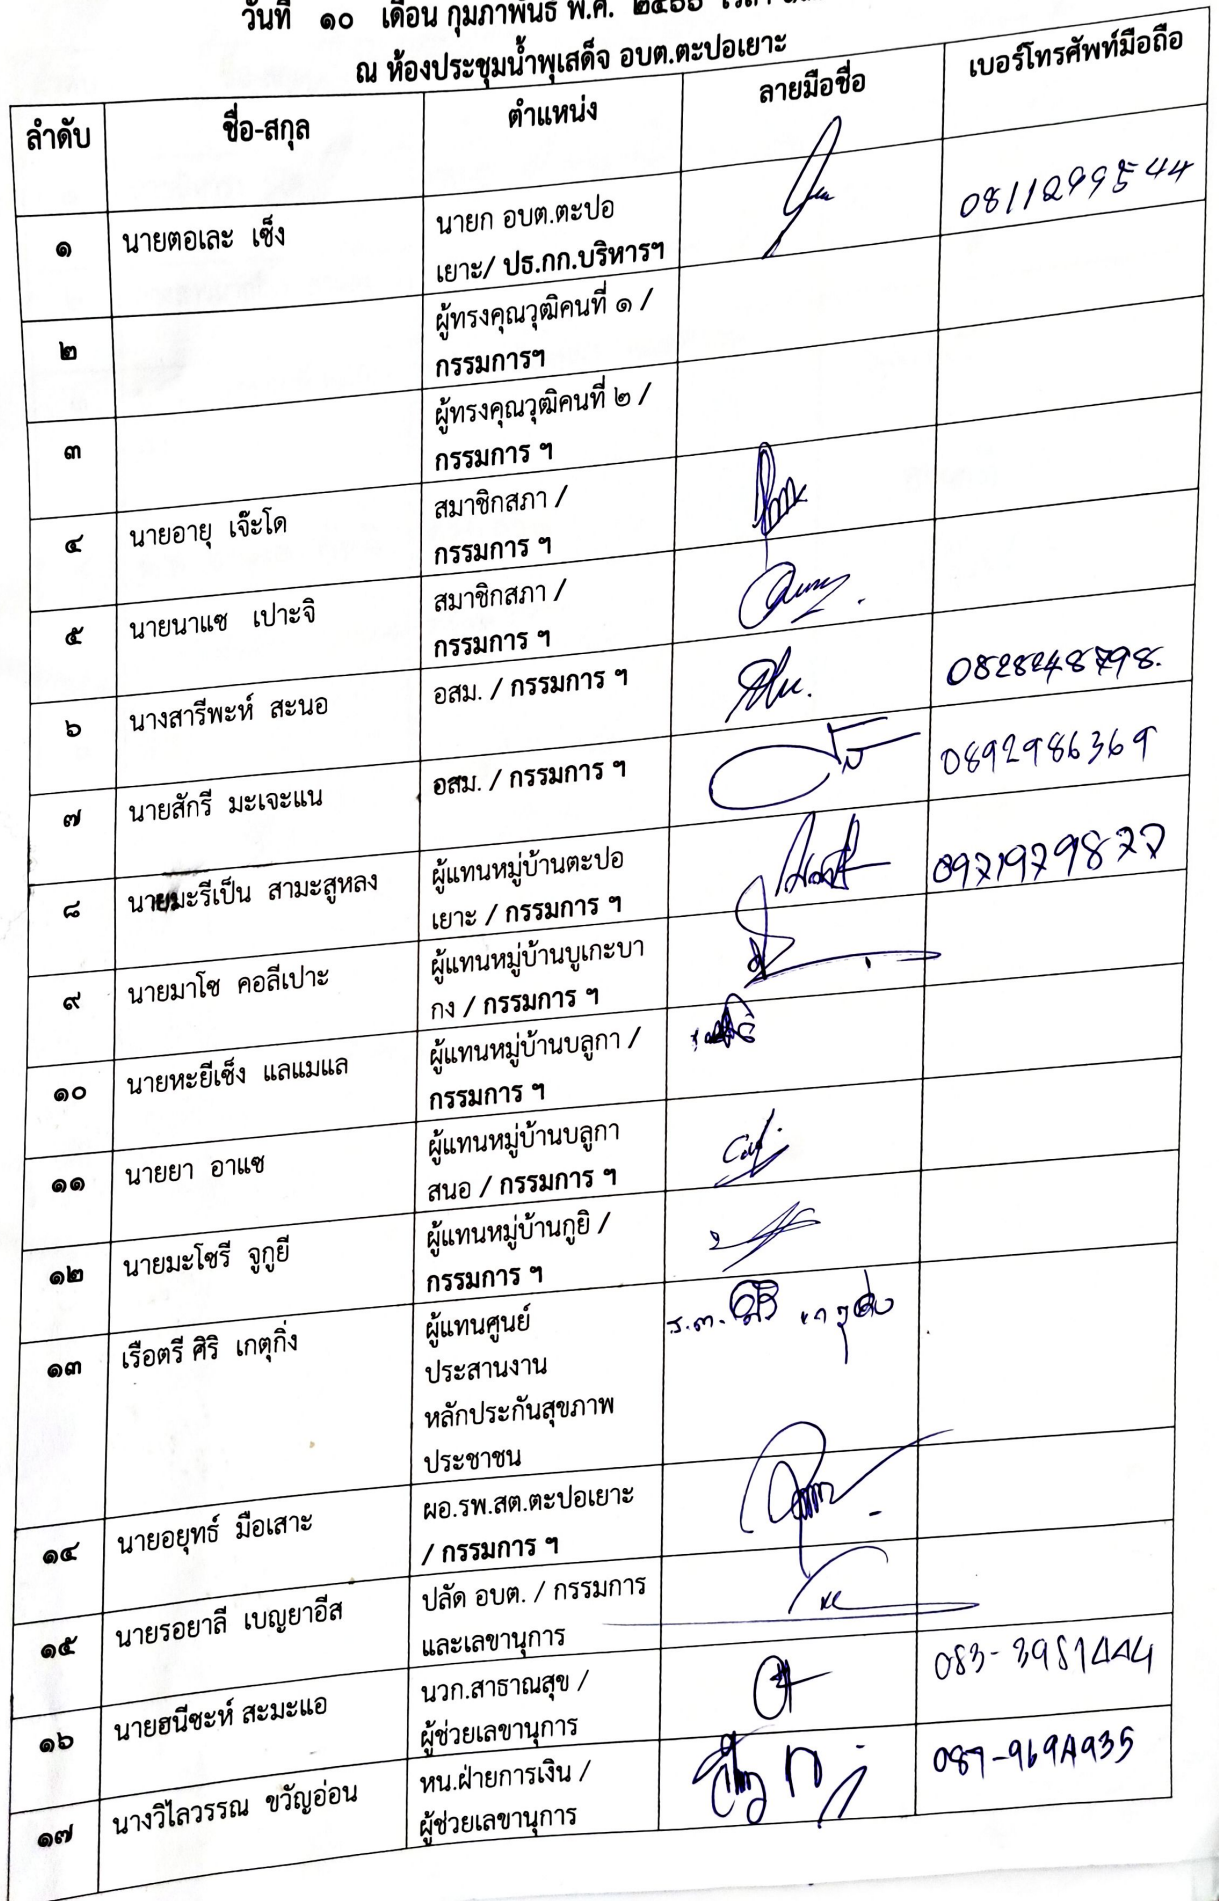 วันที่ ๑๐ เดือน กุมภาพันธ์ พ.ศ. ๒๕๖๖
ณ ห้องประชุมน้ำพุเสด็จ อบต.ตะปอเยาะ
ลำดับ ชื่อ-สกุล ตำแหน่ง ลายมือชื่อ เบอร์โทรศัพท์มือถือ
๑ นายตอเละ เซ็ง นายก อบต.ตะปอ 0811299544
เยาะ/ ปธ.กก.บริหารฯ
๒ ผู้ทรงคุณวุฒิคนที่ ๑ /
กรรมการฯ
๓ ผู้ทรงคุณวุฒิคนที่ ๒ /
กรรมการ ฯ
๔ นายอายุ เจ๊ะโด สมาชิกสภา /
กรรมการ ฯ
๕ นายนาแซ เปาะจิ สมาชิกสภา /
กรรมการ ฯ
๖ นางสารีพะห์ สะนอ อสม. / กรรมการ ฯ 0828248798.
๗ นายสักรี มะเจะแน อสม. / กรรมการ ฯ 0892986369
๘ นายมะรีเป็น สามะสูหลง ผู้แทนหมู่บ้านตะปอ
เยาะ / กรรมการ ฯ
๙ นายมาโซ คอลีเปาะ ผู้แทนหมู่บ้านบูเกะบา
กง / กรรมการ ฯ
๑๐ นายหะยีเซ็ง แลแมแล ผู้แทนหมู่บ้านบลูกา /
กรรมการ ฯ
๑๑ นายยา อาแซ ผู้แทนหมู่บ้านบลูกา
สนอ / กรรมการ ฯ
๑๒ นายมะโซรี จูกูยี ผู้แทนหมู่บ้านกูยิ /
กรรมการ ฯ
๑๓ เรือตรี ศิริ เกตุกิ่ง ผู้แทนศูนย์ ร.ต.
ประสานงาน
หลักประกันสุขภาพ
ประชาชน
๑๔ นายอยุทธ์ มือเสาะ ผอ.รพ.สต.ตะปอเยาะ
/ กรรมการ ฯ
๑๕ นายรอยาลี เบญยาอีส ปลัด อบต. / กรรมการ
และเลขานุการ
๑๖ นายฮนีซะห์ สะมะแอ นวก.สาธาณสุข / 083-3951444
ผู้ช่วยเลขานุการ
๑๗ นางวิไลวรรณ ขวัญอ่อน หน.ฝ่ายการเงิน / 087-9694935
ผู้ช่วยเลขานุการ